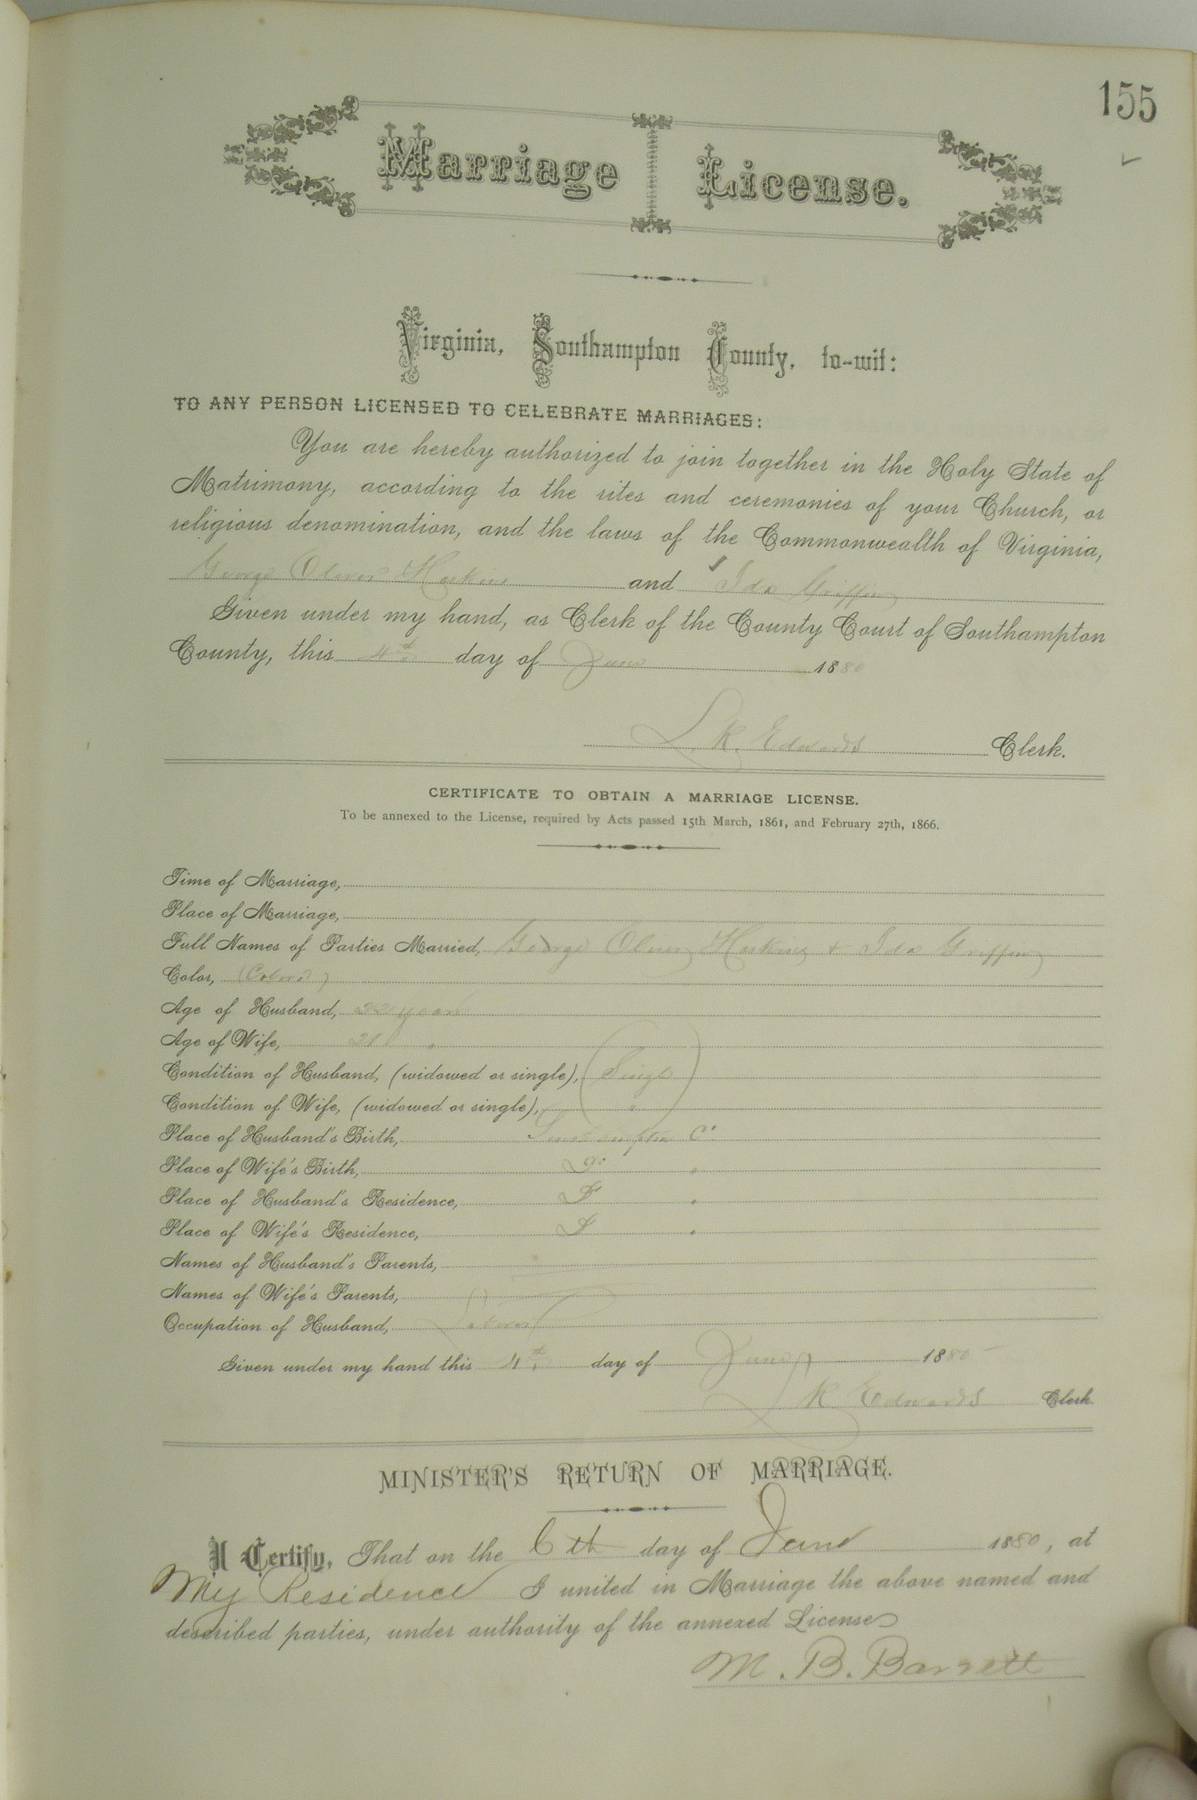 155
Marriage License.
Virginia, Southampton County, to-wit:
TO ANY PERSON LICENSED TO CELEBRATE MARRIAGES:
You are hereby authorized to join together in the Holy State of
Matrimony, according to the rites and ceremonies of your Church, or
religious denomination, and the laws of the Commonwealth of Virginia,
George Oliver Haskins and Ida Griffin
Given under my hand, as Clerk of the County Court of Southampton
County, this 4th day of June 1880
L. R. Edwards Clerk.
CERTIFICATE TO OBTAIN A MARRIAGE LICENSE.
To be annexed to the License, required by Acts passed 15th March, 1861, and February 27th, 1866.
Time of Marriage,
Place of Marriage,
Full Names of Parties Married, George Oliver Haskins + Ida Griffin
Color, (Colored)
Age of Husband, 22 years
Age of Wife, 21 "
Condition of Husband, (widowed or single), (Single)
Condition of Wife, (widowed or single), "
Place of Husband's Birth, Southampton Co
Place of Wife's Birth, Do "
Place of Husband's Residence, Do "
Place of Wife's Residence, Do "
Names of Husband's Parents,
Names of Wife's Parents,
Occupation of Husband, Laborer
Given under my hand this 4th day of June 1880
L R Edwards Clerk
MINISTER'S RETURN OF MARRIAGE.
I Certify, That on the 6th day of June 1880, at
My Residence I united in Marriage the above named and
described parties, under authority of the annexed License
M. B. Barrett